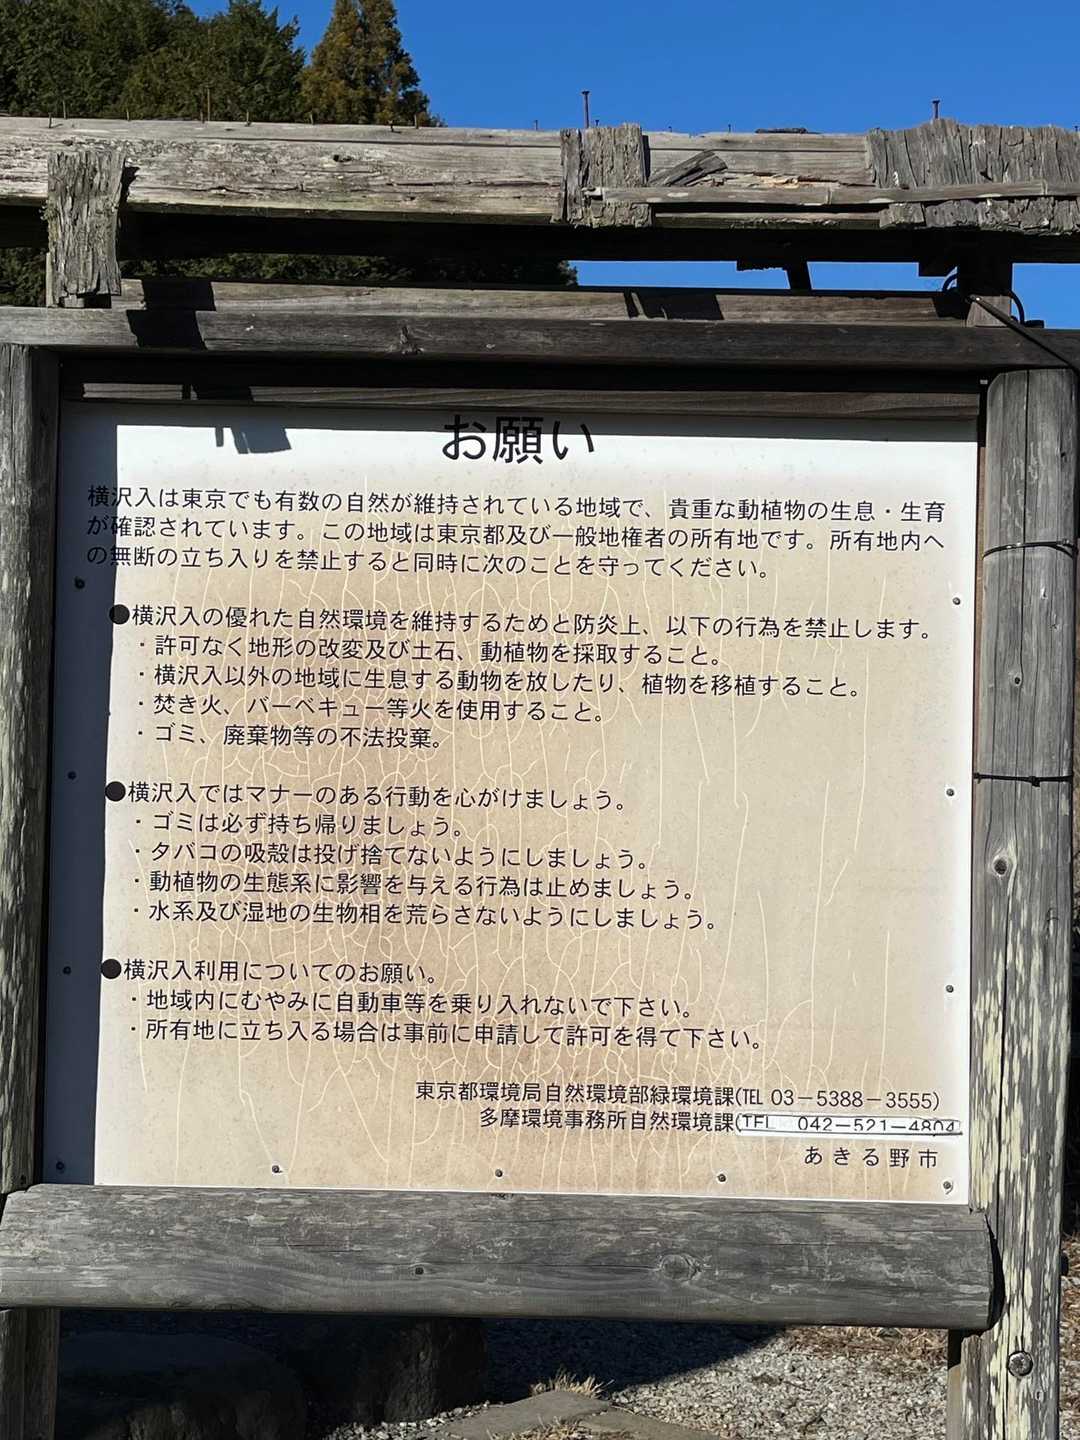 お願い
横沢入は東京でも有数の自然が維持されている地域で、貴重な動植物の生息・生育
が確認されています。この地域は東京都及び一般地権者の所有地です。所有地内へ
の無断の立ち入りを禁止すると同時に次のことを守ってください。
●横沢入の優れた自然環境を維持するためと防炎上、以下の行為を禁止します。
・許可なく地形の改変及び土石、動植物を採取すること。
・横沢入以外の地域に生息する動物を放したり、植物を移植すること。
・焚き火、バーベキュー等火を使用すること。
・ゴミ、廃棄物等の不法投棄。
●横沢入ではマナーのある行動を心がけましょう。
・ゴミは必ず持ち帰りましょう。
・タバコの吸殻は投げ捨てないようにしましょう。
・動植物の生態系に影響を与える行為は止めましょう。
・水系及び湿地の生物相を荒らさないようにしましょう。
●横沢入利用についてのお願い。
・地域内にむやみに自動車等を乗り入れないで下さい。
・所有地に立ち入る場合は事前に申請して許可を得て下さい。
東京都環境局自然環境部緑環境課(TEL 03-5388-3555)
多摩環境事務所自然環境課(TEL 042-521-4804
あきる野市